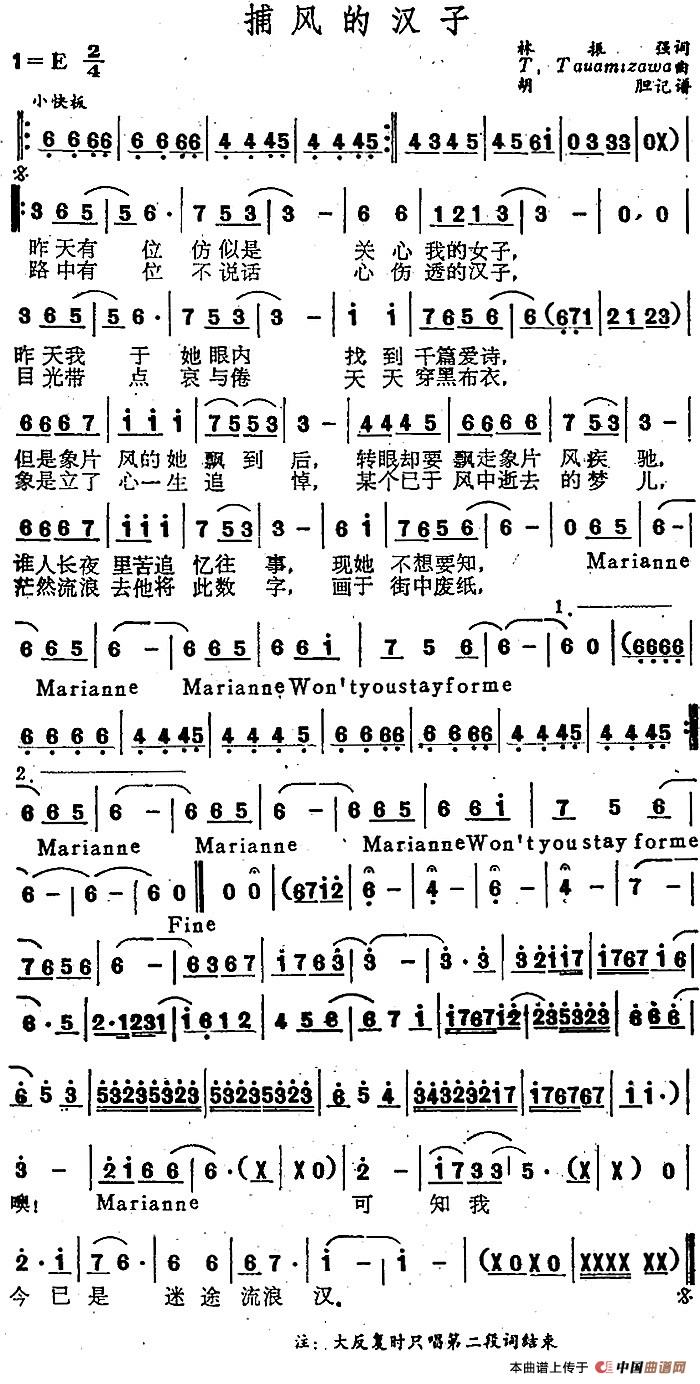 捕风的汉子
1=E 2/4
林振强词
T. Tauamizawa曲
胡胆记谱
小快板
6 6 66 | 6 6 66 | 4 4 45 | 4 4 45 :‖ 4345 | 456i | 0333 | 0X) |
3 65 | 56· | 7 53 | 3 - | 6 6 | 1213 | 3 - | 0, 0 |
昨天有 位 仿似是 关 心 我的女子,
路中有 位 不说话 心 伤 透的汉子,
3 65 | 56· | 7 53 | 3 - | i i | 7656 | 6(671 | 2123) |
昨天我 于 她眼内 找 到 千篇爱诗,
目光带 点 哀与倦 天 天 穿黑布衣,
6667 | i i i | 7553 | 3 - | 4445 | 6666 | 7 53 | 3 - |
但是象片 风的她 飘到后, 转眼却要 飘走象片 风疾 驰,
象是立了 心一生 追 悼, 某个已于 风中逝去 的梦 儿,
6666 | i i i | 7 53 | 3 - | 6 i | 7656 | 6 - | 0 65 | 6 - |
谁人长夜 里苦追 忆往 事, 现她 不想要知, Marianne
茫然流浪 去他将 此数 字, 画于 街中废纸,
1.
6 65 | 6 - | 6 65 | 6 6i | 7 5 6 | 6 - | 6 0 | (6666 |
Marianne Marianne Won't you stay for me
6 6 6 6 | 4 4 45 | 4 4 45 | 6 6 66 | 6 6 66 | 4 4 45 | 4 4 45 :‖
2.
6 65 | 6 - | 6 65 | 6 - | 6 65 | 6 6i | 7 5 6 |
Marianne Marianne Marianne Won't you stay for me
6 - | 6 - | 6 0 ‖ 0 0 | (6712 | 6 - | 4 - | 6 - | 4 - | 7 - |
Fine
7656 | 6 - | 6367 | i763 | 3 - | 3·3 | 32i i7 | i767 i6 |
6·5 | 2·1231 | i612 | 456 | 671 | i767i2 | 235323 | 666 |
6 5 3 | 53235323 | 53235323 | 6 5 4 | 343232i7 | i76767 | i i·) |
3 - | 2i66 | 6·(X | X X0) | 2 - | i733i | 5·(X | X X) 0 |
噢! Marianne 可 知我
2·i | 76· | 6 6 | 67· | i - | i - | (X0X0 | XXXX XX) |
今 已是 迷途 流浪 汉。
注: 大反复时只唱第二段词结束
本曲谱上传于 中国曲谱网